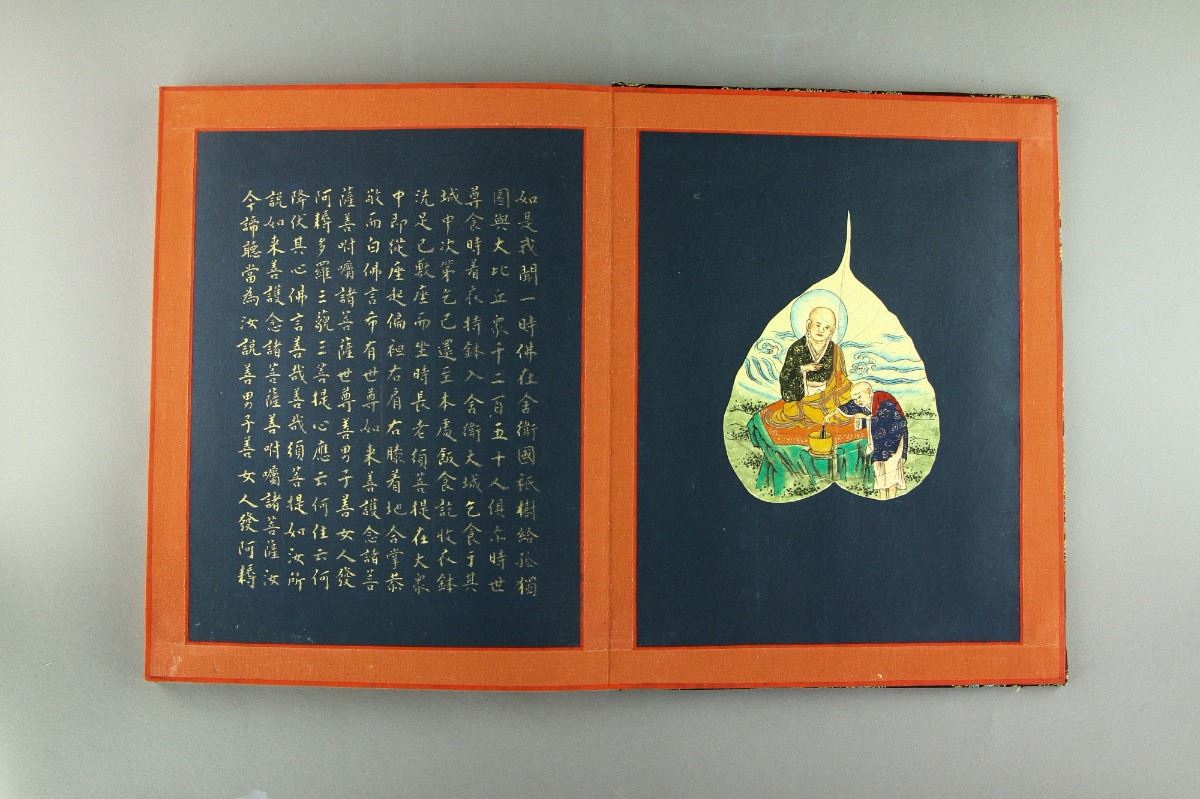 如是我聞一時佛在舍衛國祇樹給孤獨
園與大比丘眾千二百五十人俱尒時世
尊食時着衣持鉢入舍衛大城乞食于其
城中次第乞已還至本處飯食訖收衣鉢
洗足已敷座而坐時長老須菩提在大眾
中即從座起偏袒右肩右膝着地合掌恭
敬而白佛言希有世尊如来善護念諸菩
薩善咐囑諸菩薩世尊善男子善女人發
阿耨多羅三藐三菩提心應云何住云何
降伏其心佛言善哉善哉須菩提如汝所
説如来善護念諸菩薩善咐囑諸菩薩汝
今諦聽當為汝説善男子善女人發阿耨